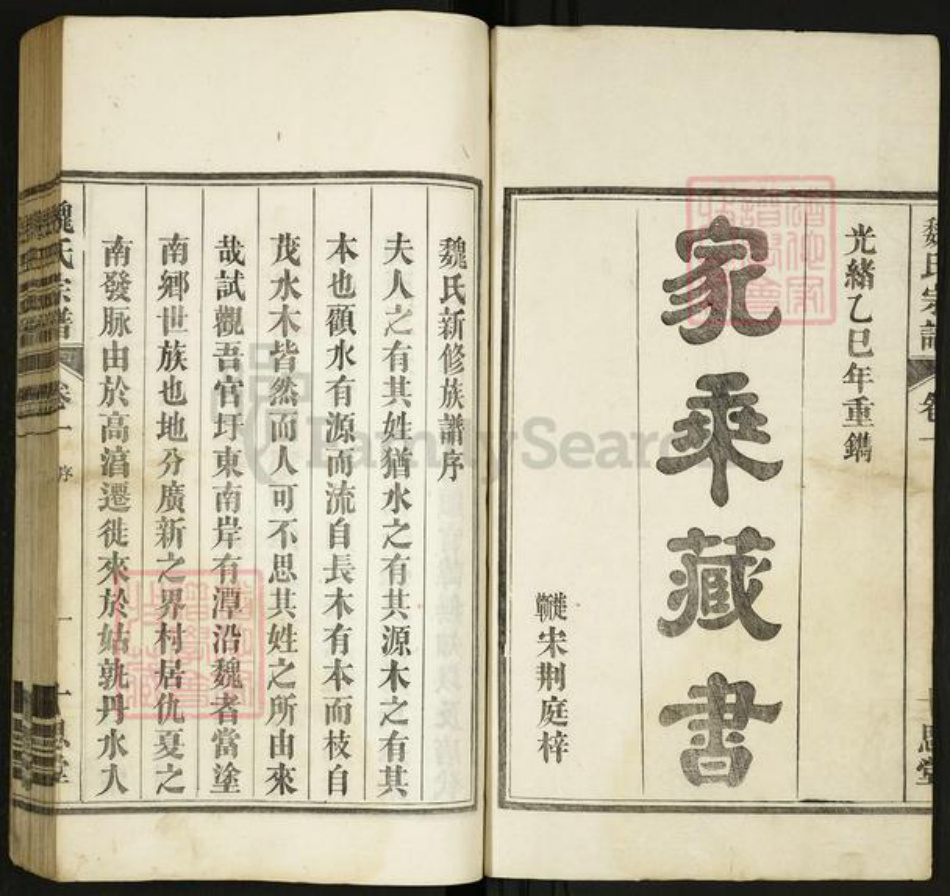 魏氏宗譜
卷一
光緒乙巳年重鐫
家乘藏書
宋荆庭梓
魏氏新修族譜序
夫人之有其姓猶水之有其源木之有其
本也顧水有源而流自長木有本而枝自
茂水木皆然而人可不思其姓之所由來
哉試觀吾官圩東南岸有潭沿魏者當塗
南鄉世族也地分廣新之界村居仇夏之
南發脉由於高湻遷徙來於姑孰丹水人
魏氏宗譜
卷一 序
一
FamilySearch